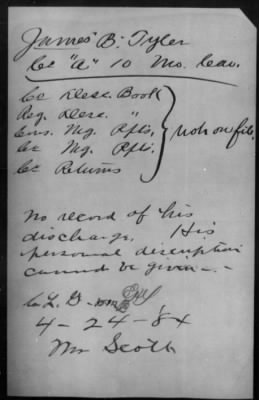 James B. Tyler
Co "A" 10 Mo. Cav.
Co Desc. Book
Reg. Desc. "
Ens. Mg. Rolls, } Not on file.
Co Mg. Rolls.
Co Returns
No record of his
discharge. His
personal description
cannot be given -.-
4-24-84
Mr Scott